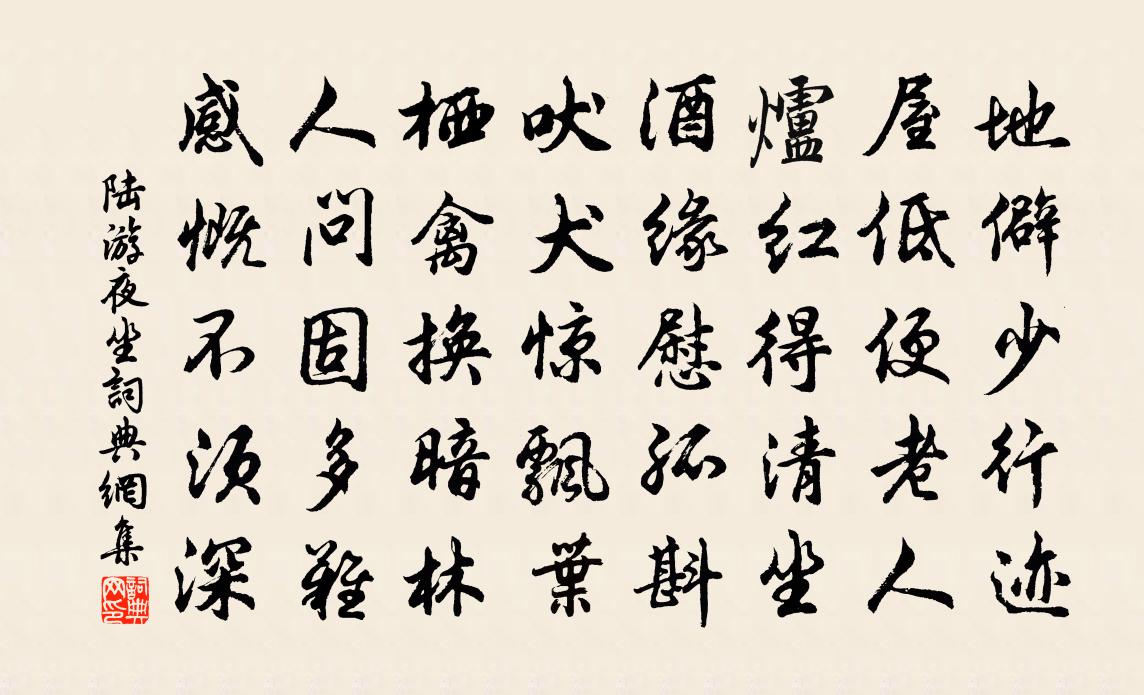 地僻少行迹
屋低便老人
爐红得清坐
酒缘慰孤斟
吠犬惊飘葉
栖禽换暗林
人问固多難
感慨不须深
陆游夜坐詞典網集
詞典网印